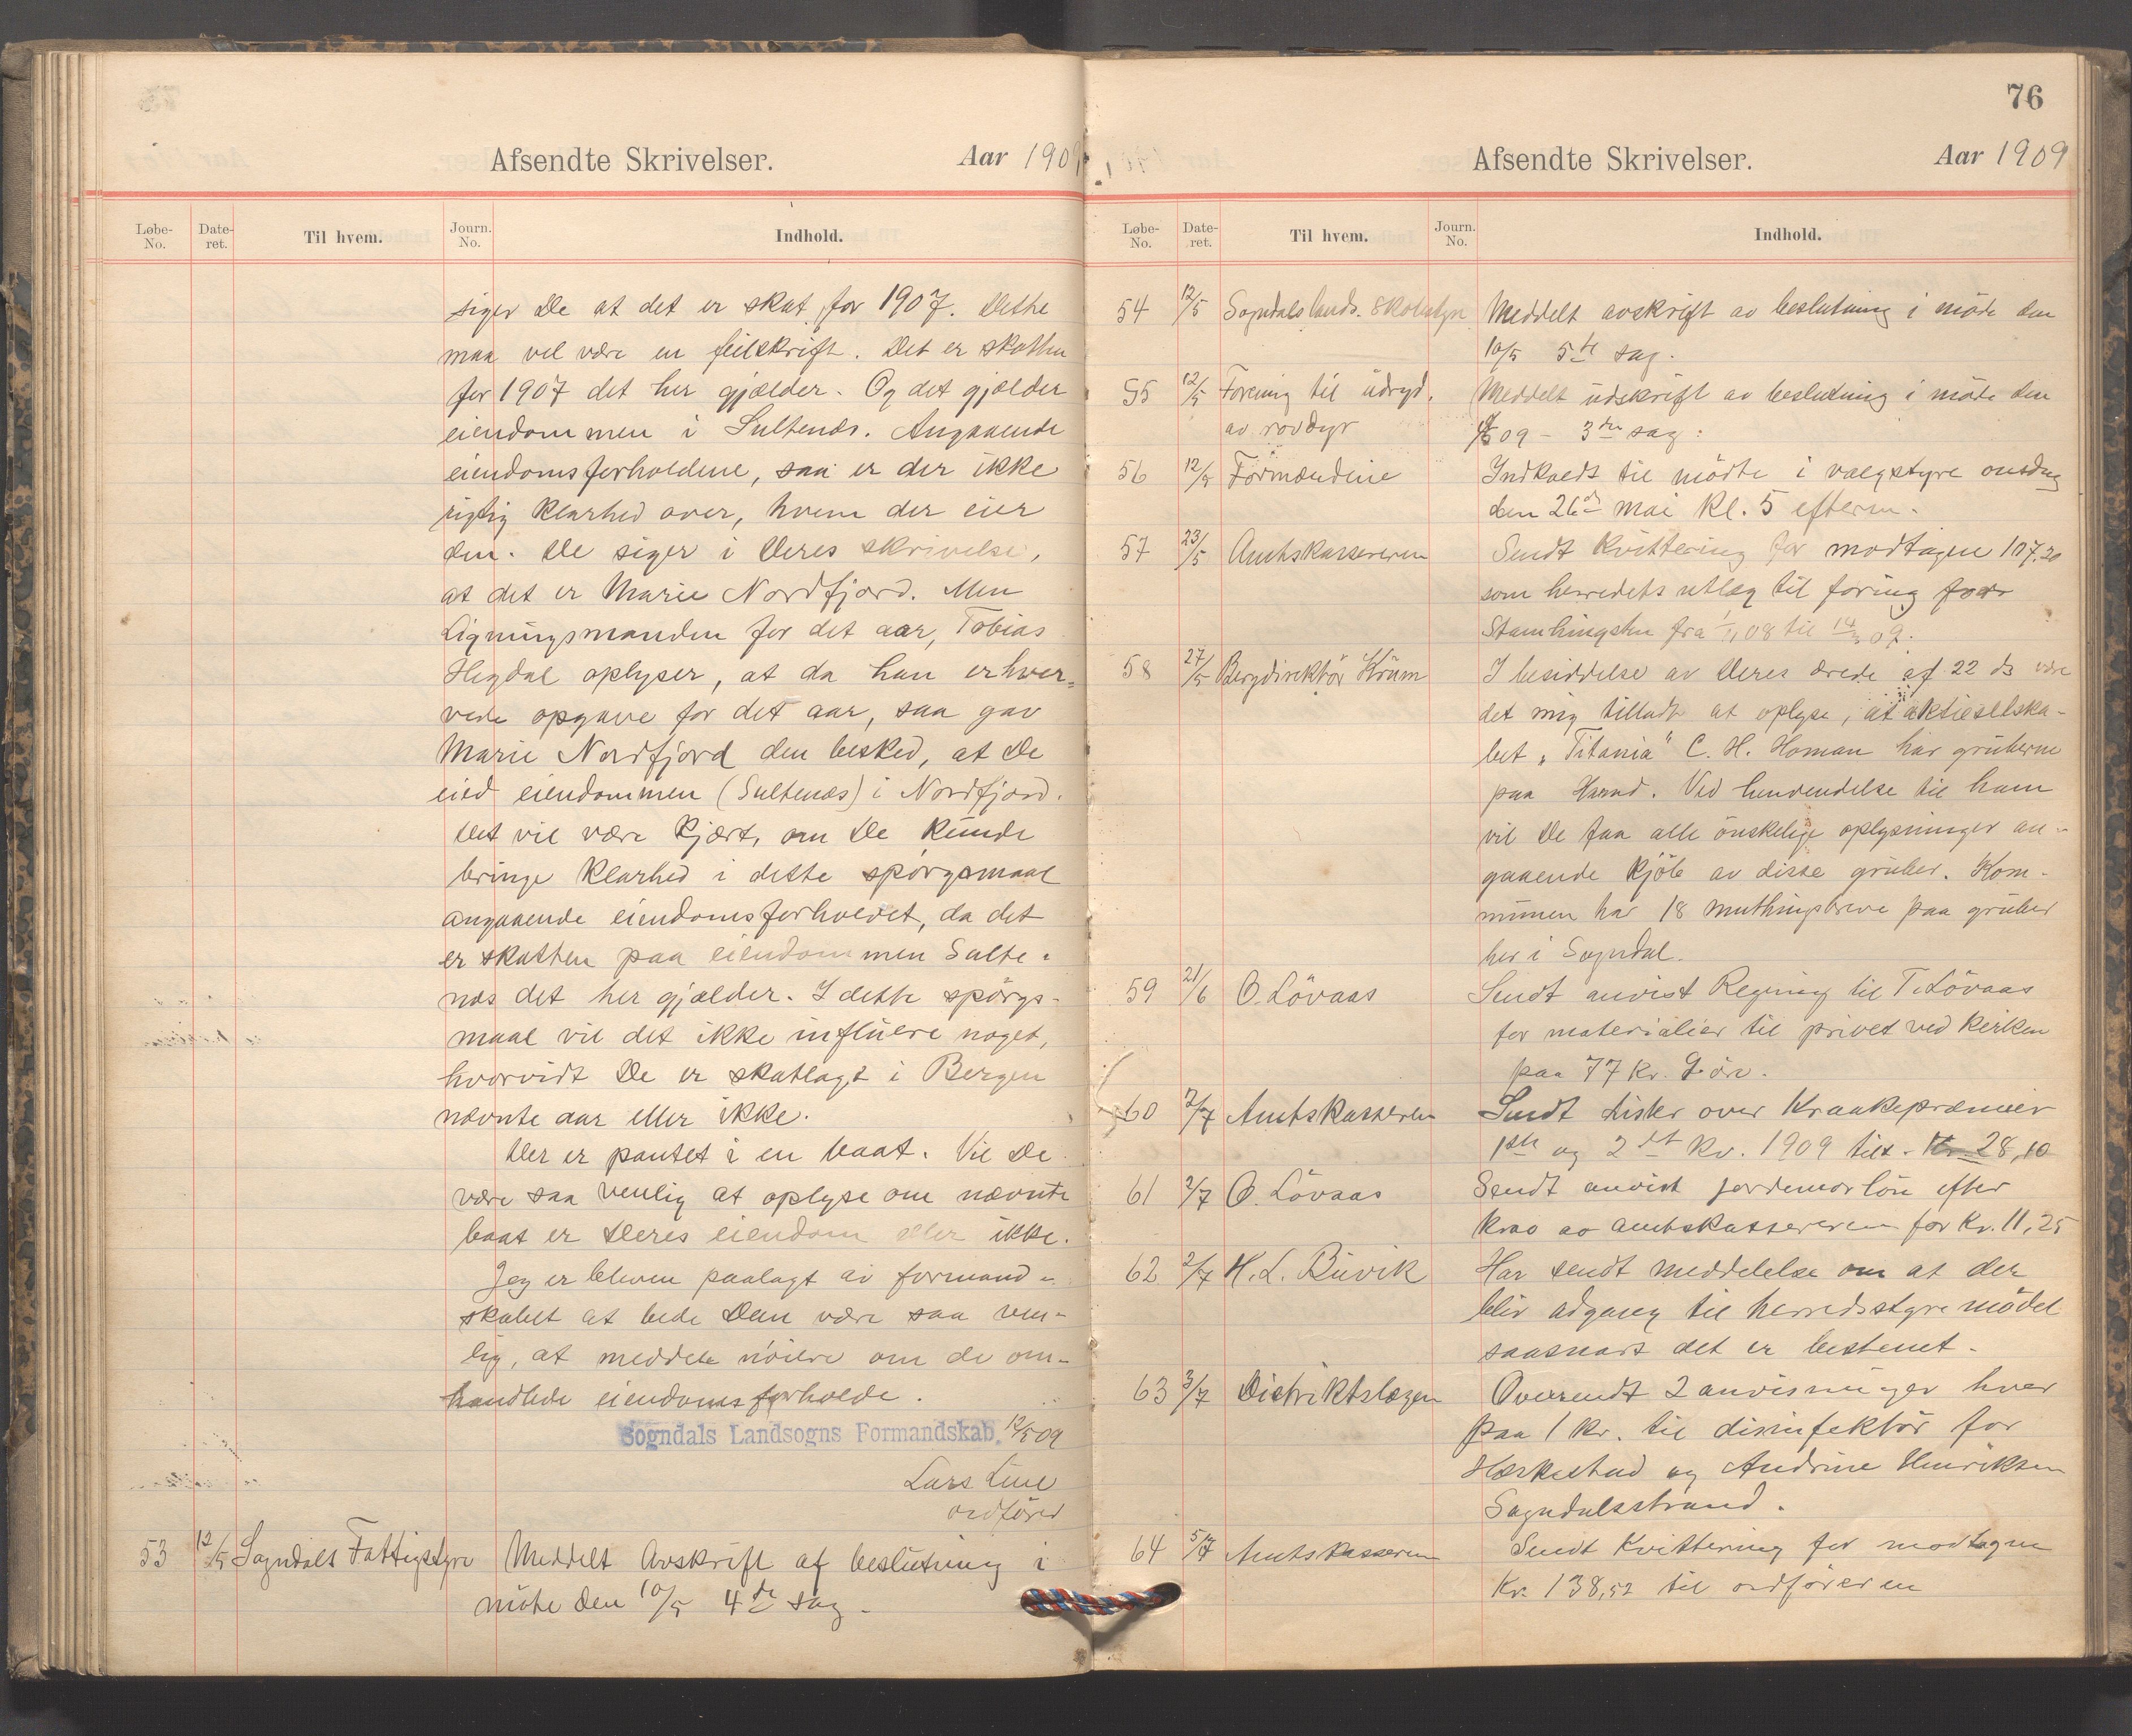 Afsendte Skrivelser. Aar 1909
Løbe-No. Date-ret. Til hvem. Journ. No. Indhold.
siger De at det er skat for 1907. Dette
maa vel være en feilskrift. Det er skatten
for 1907 det her gjælder. Og det gjælder
eiendommen i Sultenæs. Angaaende
eiendomsforholdene, saa er der ikke
rigtig klarhed over, hvem der eier
den. De siger i Deres skrivelse,
at det er Marie Nordfjord. Men
Ligningsmanden for det aar, Tobias
Hegdal oplyser, at da han erhver-
vede opgave for det aar, saa gav
Marie Nordfjord den besked, at De
eied eiendommen (Sultenæs) i Nordfjord.
Det vil være kjært, om De kunde
bringe klarhed i dette spörgsmaal
angaaende eiendomsforholdet, da det
er skatten paa eiendommen Sulte-
næs det her gjælder. I dette spörgs-
maal vil det ikke influere noget,
hvorvidt De er skatlagt i Bergen
nævnte aar eller ikke.
Der er pantet i en baat. Vil De
være saa venlig at oplyse om nævnte
baat er Deres eiendom eller ikke.
Jeg er bleven paalagt av formand-
skabet at bede Dem være saa ven-
lig, at meddele nöiere om de om-
handlede eiendomsforholde.
Sogndals Landsogns Formandskab. 12/5 09
Lars Line
ordförer
53 12/5 Sogndals Fattigstyre Meddelt Avskrift af beslutning i
möte den 10/5 4de sag.
76
Afsendte Skrivelser. Aar 1909
Løbe-No. Date-ret. Til hvem. Journ. No. Indhold.
54 12/5 Sogndals lands. Skolestyre Meddelt avskrift av beslutning i möte den
10/5 5te sag.
55 12/5 Forening til udryd. Meddelt udskrift av beslutning i möte den
av rovdyr 09 - 3die sag.
56 12/5 Formændene Indkaldt til mödte i valgstyre onsdag
den 26de mai kl. 5 efterm.
57 23/5 Amtskassereren Sendt kvittering for modtagne 107,20
som herredets utlæg til foring for
Stamhingsten fra 1/1 08 til 14/3 09.
58 27/5 Bergdirektör Krüm I besiddelse av Deres ærede af 22 ds være
det mig tilladt at oplyse, at aktieselska-
bet "Titania" C. H. Homan har gruberne
paa Haand. Ved henvendelse til ham
vil De faa alle önskelige oplysninger an-
gaaende kjöb av disse gruber. Kom-
munen har 18 muthingsbreve paa gruber
her i Sogndal.
59 21/6 O. Lövaas Sendt anvist Regning til T. Lövaas
for materialier til privet ved kirken
paa 77 kr. 9 öre.
60 2/7 Amtskasseren Sendt Lister over Kraakepræmier
1ste og 2det kv. 1909 tils. Kr 28,10
61 2/7 O. Lövaas Sendt anvist jordemorlön efter
krav av amtskassereren for Kr. 11,25
62 2/7 H. L. Buvik Har sendt meddelelse om at der
blir adgang til herredsstyremödet
saasnart det er bestemt.
63 3/7 Distriktslægen Oversendt 2 anvisninger hver
paa 1 kr. til disinfektör for
Hærkestad og Andrine Henriksen
Sogndalsstrand.
64 5/7 Amtskasseren Sendt Kvittering for modtagne
Kr. 138,52 til ordföreren